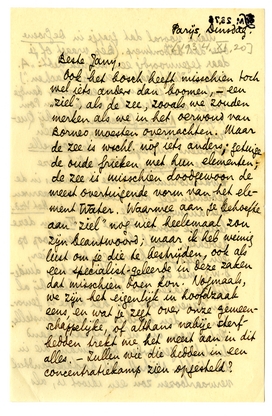 Parijs Dinsdag.
Beste Jany,
Ook het bosch heeft misschien toch
wel iets anders dan boomen, – een
"ziel", als de zee, zooals we zouden
merken als we in het oerwoud van
Borneo moesten overnachten. Maar
de zee is wschl. nog iets anders, getuige
de oude Grieken met hun elementen;
de zee is misschien doodgewoon de
meest overtuigende vorm van het ele-
ment Water. Waarmee aan je behoefte
aan "ziel" nog niet heelemaal zou
zijn beantwoord; maar ik heb weinig
lust om je die te bestrijden, ook als
een specialist-geleerde in deze zaken
dat misschien doen kon. Nogmaals,
we zijn het eigenlijk in hoofdzaak
eens, en wat je zegt over onze gemeen-
schappelijke, of althans nabije sterf-
bedden trekt me het meest aan in dit
alles. – Zullen wie die bedden in een
concentratiekamp zien opgesteld?